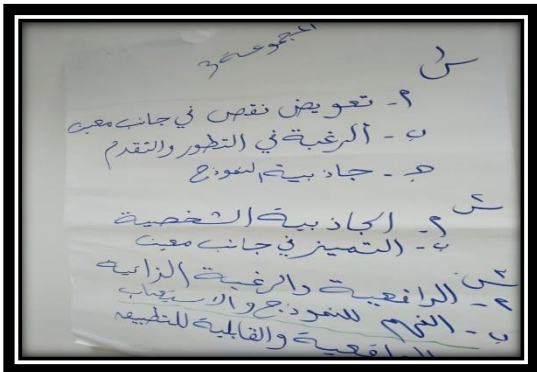 المجموعة 3
س١
P- تعويض نقص في جانب معين
ب- الرغبة في التطور والتقدم
هـ- جاذبية النموذج
س٢
P- الجاذبية الشخصية
ب- التميز في جانب معين
س٣
P- الدافعية والرغبة الذاتية
ب- الفهم للنموذج والاستيعاب
الدافعية والقابلية للتطبيق